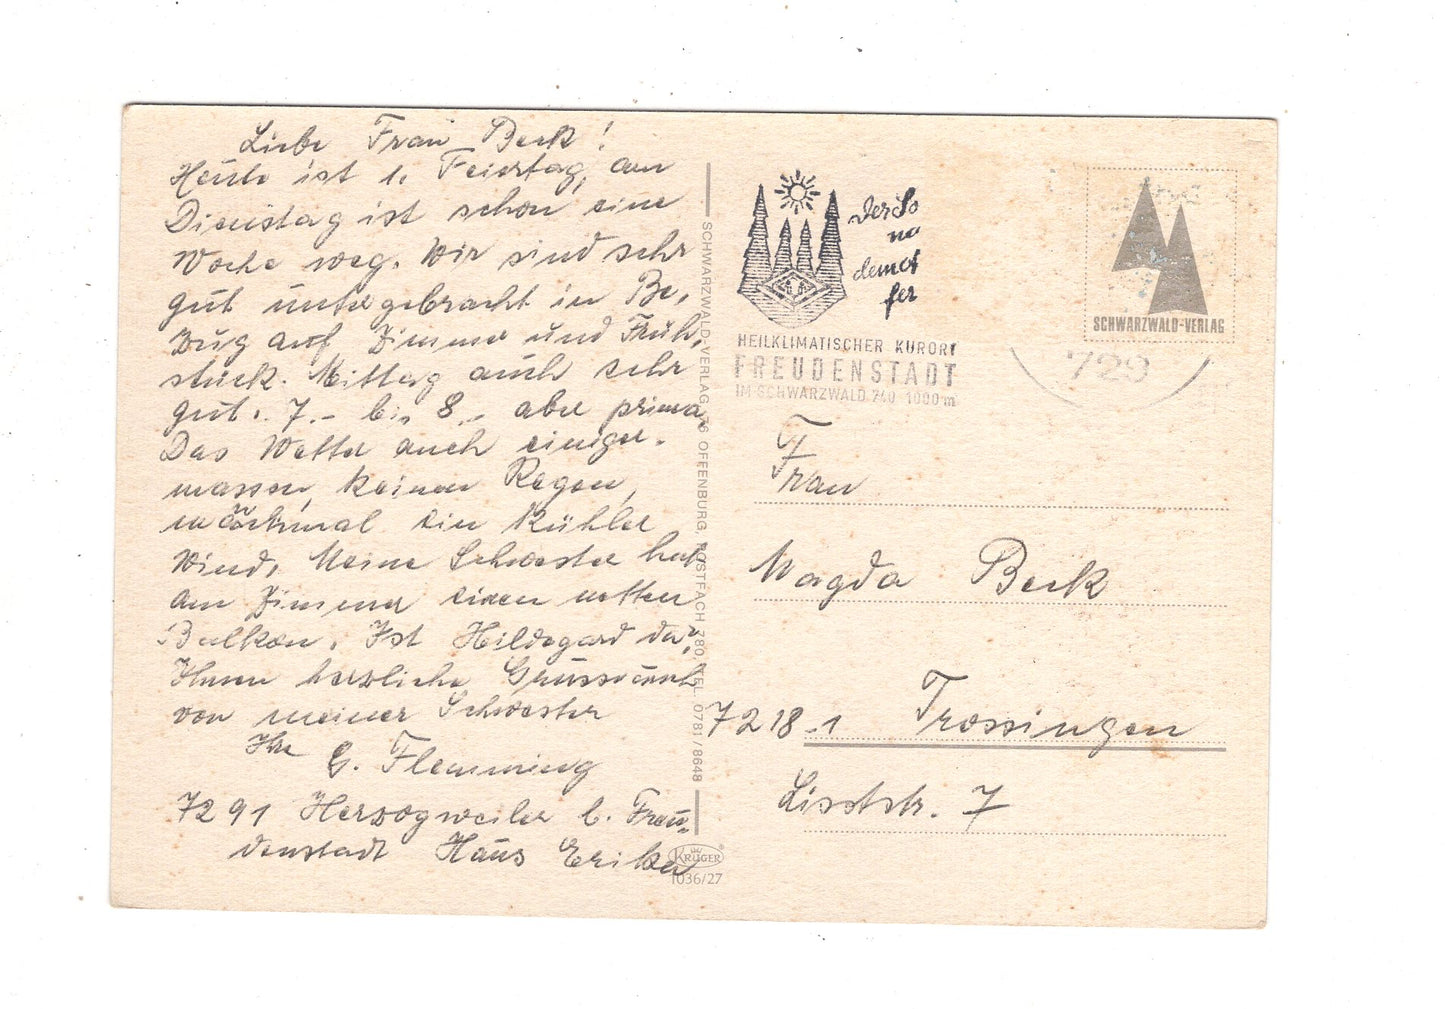 Liebe Frau Beck!
Heute ist 1. Feiertag, am
Dienstag ist schon eine
Woche weg. Wir sind sehr
gut untergebracht in Be-
zug auf Zimmer und Früh-
stück. Mittag auch sehr
gut. 7.- bis 8.- aber prima.
Das Wetter auch einiger-
massen, keinen Regen,
manchmal ein kühler
Wind. Meine Schwester hat
am Zimmer einen netten
Balkon. Ist Hildegard da?
Ihnen herzliche Grüsse auch
von meiner Schwester
Ihre G. Flemming
7291 Herzogweiler b. Freu-
denstadt Haus Erika
SCHWARZWALD-VERLAG, 76 OFFENBURG, POSTFACH 780, TEL. 0781/8648
KRÜGER®
1036/27
der So
na
dem
fer
HEILKLIMATISCHER KURORT
FREUDENSTADT
IM SCHWARZWALD 740-1000 m
729
SCHWARZWALD-VERLAG
Frau
Magda Beck
7218 1 Trossingen
Liststr. 7